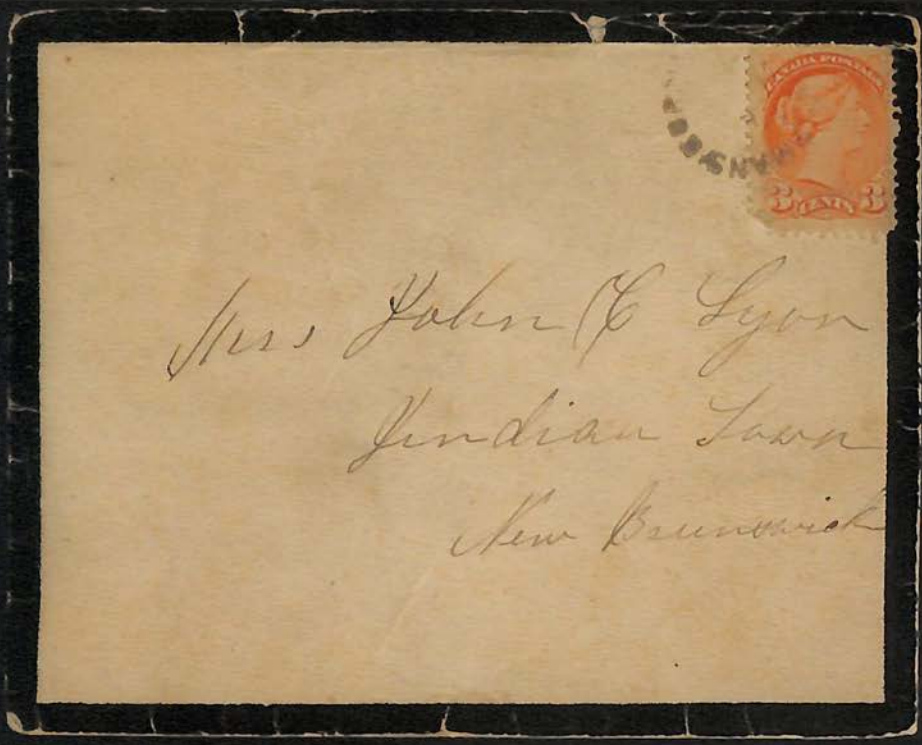 CANADA POSTAGE
3 CENTS 3
Mrs John C Lyon
Indian Town
New Brunswick